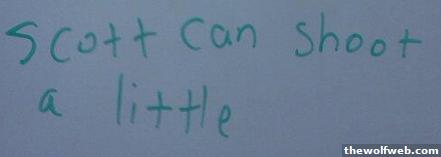 Scott can shoot
a little
thewolfweb.com